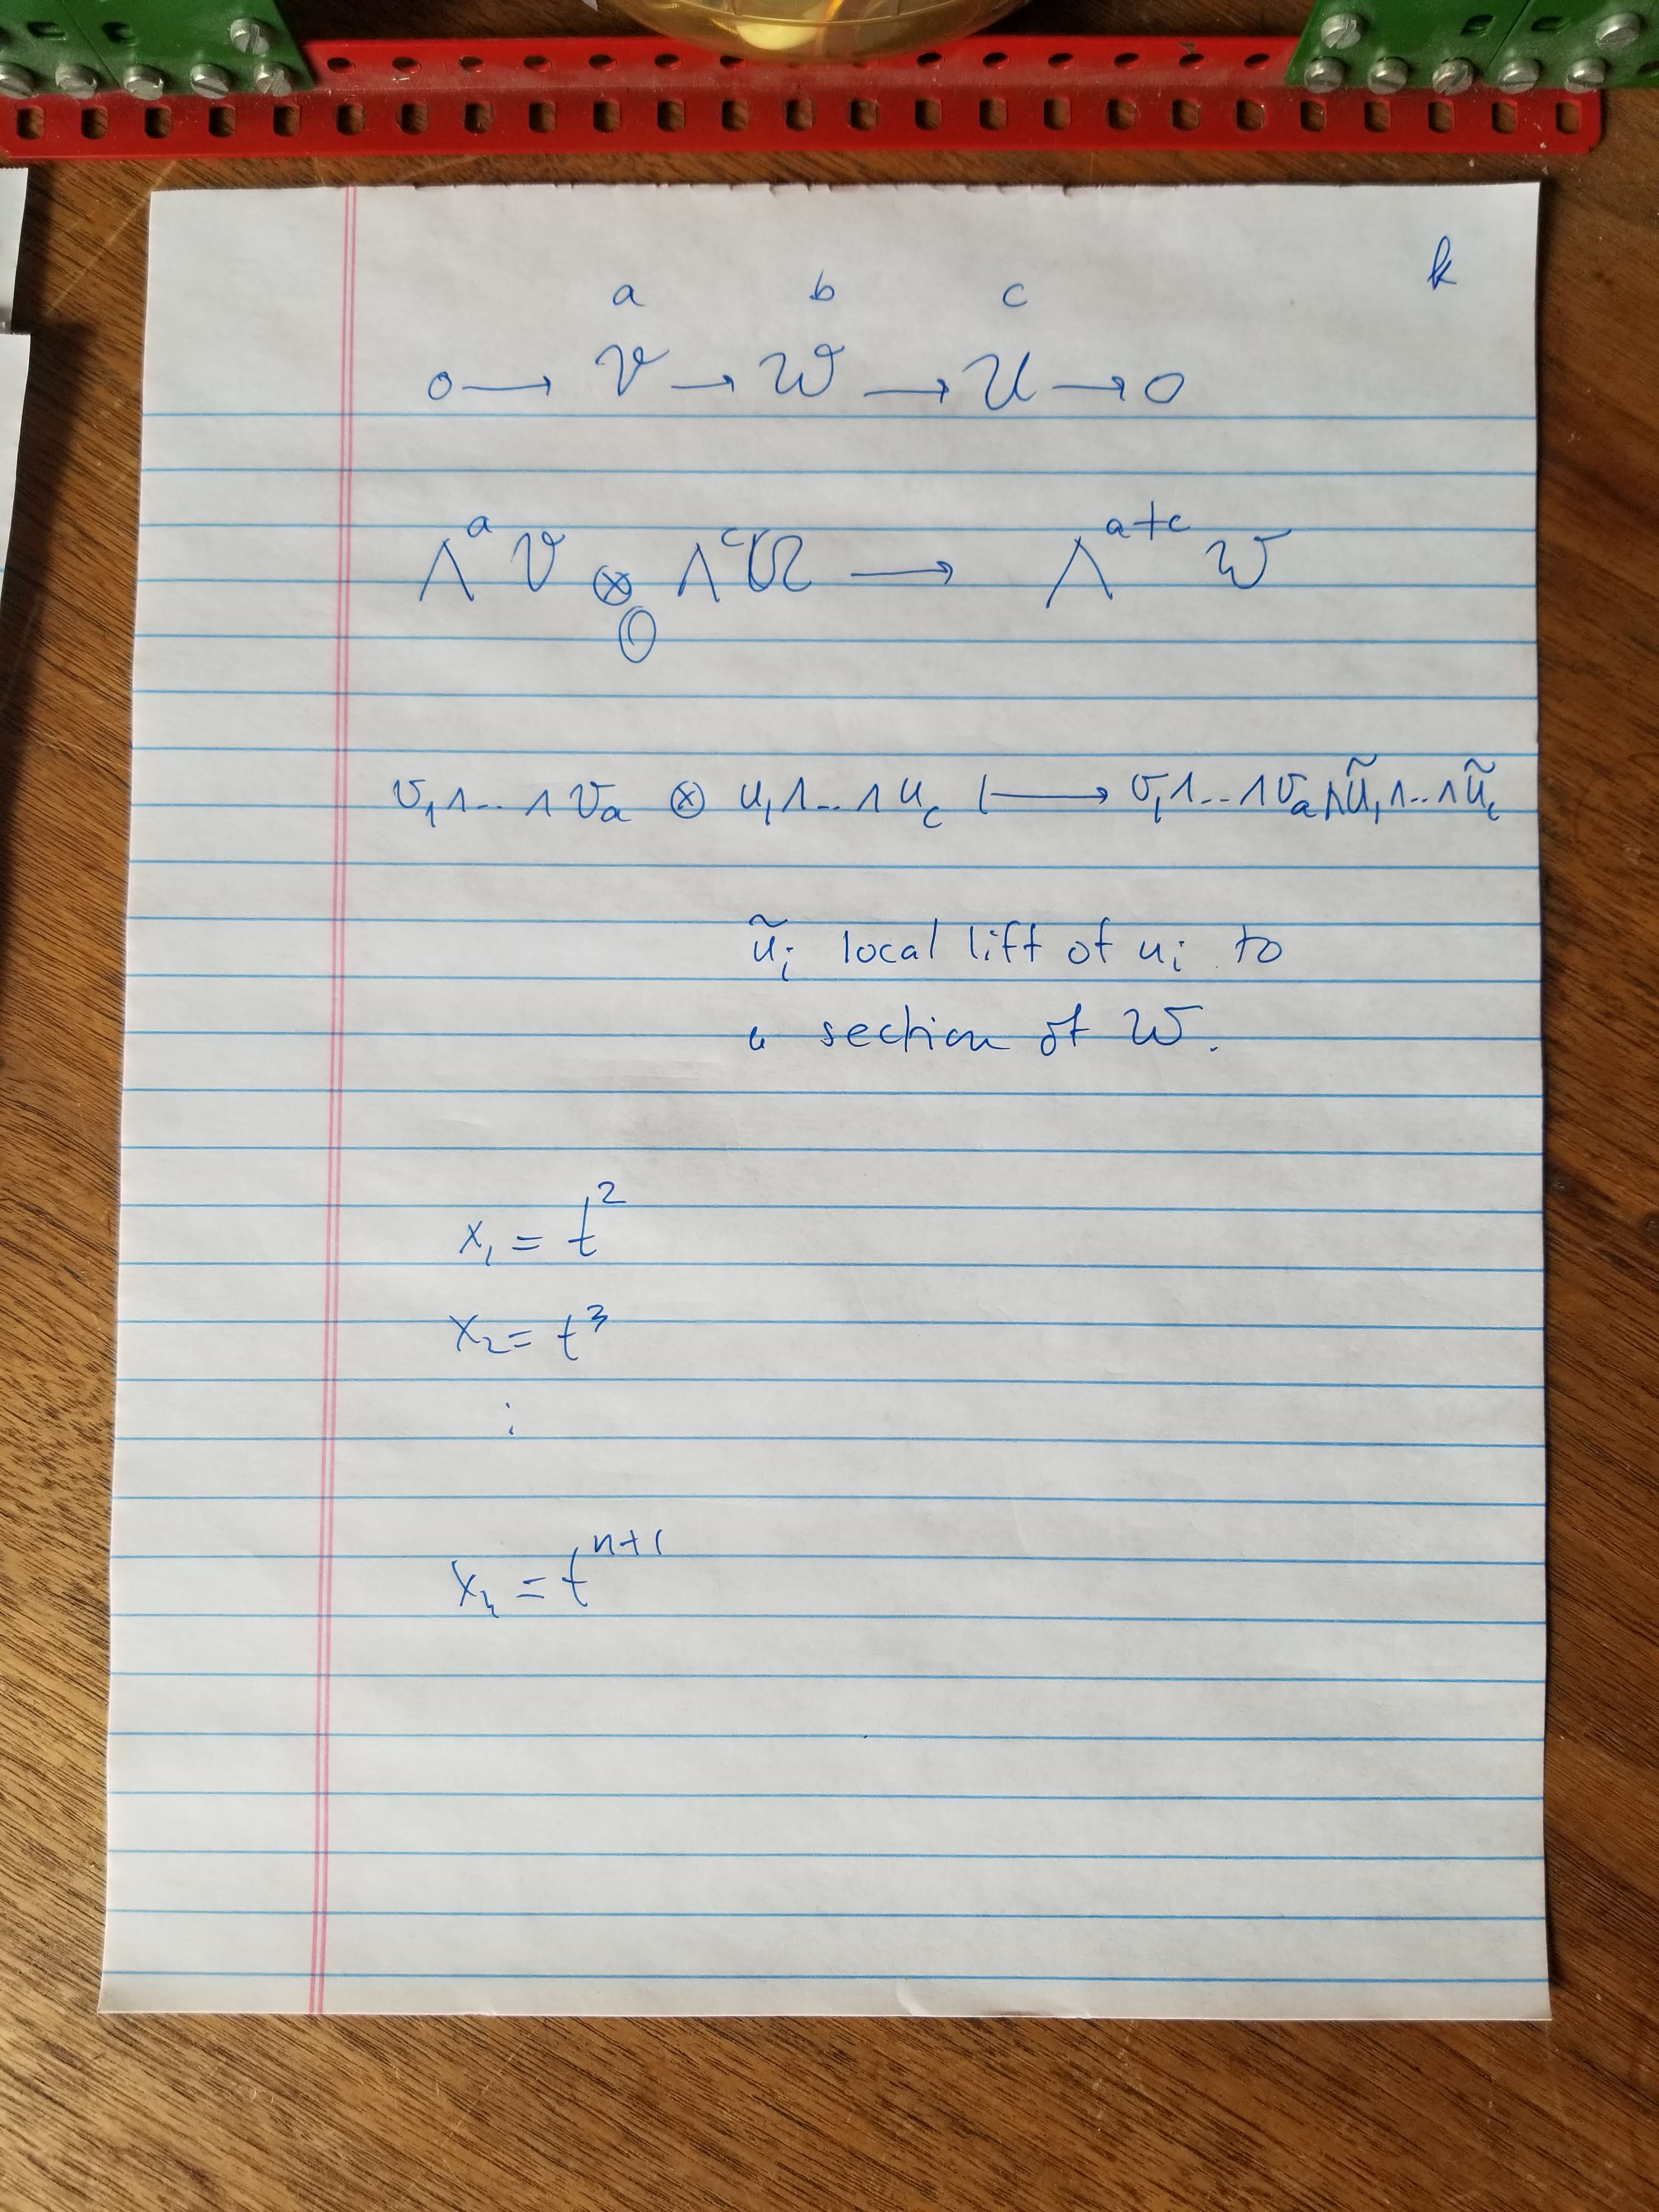 k
a b c
0 → 𝒱 → 𝒲 → 𝒰 → 0
Λ^a 𝒱 ⊗_𝒪 Λ^c 𝒰 → Λ^{a+c} 𝒲
v₁∧..∧v_a ⊗ u₁∧..∧u_c ↦ v₁∧..∧v_a∧ũ₁∧..∧ũ_c
ũ_i local lift of u_i to
a section of 𝒲.
x₁ = t²
x₂ = t³
⋮
x_n = t^{n+1}